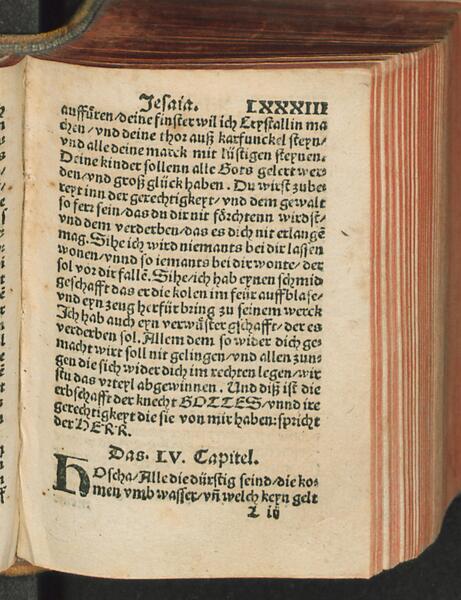 Jesaia. LXXXIII
auffüren/deine finster wil ich Crystallin ma
chen/vnd deine thor auß karfunckel steyn/
vnd alle deine marck mit lüstigen steynen.
Deine kinder sollenn alle Gots gelert wer-
den/vnd groß glück haben. Du wirst zube-
reyt inn der gerechtigkeyt/vnd dem gewalt
so ferr sein/das du dir nit förchtenn wirdst/
vnd dem verderben/das es dich nit erlangē
mag. Sihe ich wird niemants bei dir lassen
wonen/vnnd so iemants bei dir wonte/der
sol vor dir fallē. Sihe/ich hab eynen schmid
geschafft das er die kolen im feür auffblase/
vnd eyn zeug herfür bring zu seinem werck
Ich hab auch eyn verwüster gschafft/der es
verderben sol. Allem dem so wider dich ge-
macht wirt soll nit gelingen/vnd allen zun-
gen die sich wider dich im rechten legen/wir
stu das vrteyl abgewinnen. Und diß ist die
erbschafft der knecht GOTTES/vnnd ire
gerechtigkeyt die sie von mir haben: spricht
der HERR.
Das. LV. Capitel.
HOscha/Alle die dürstig seind/die ko-
men vmb wasser/vñ welch keyn gelt
L iii